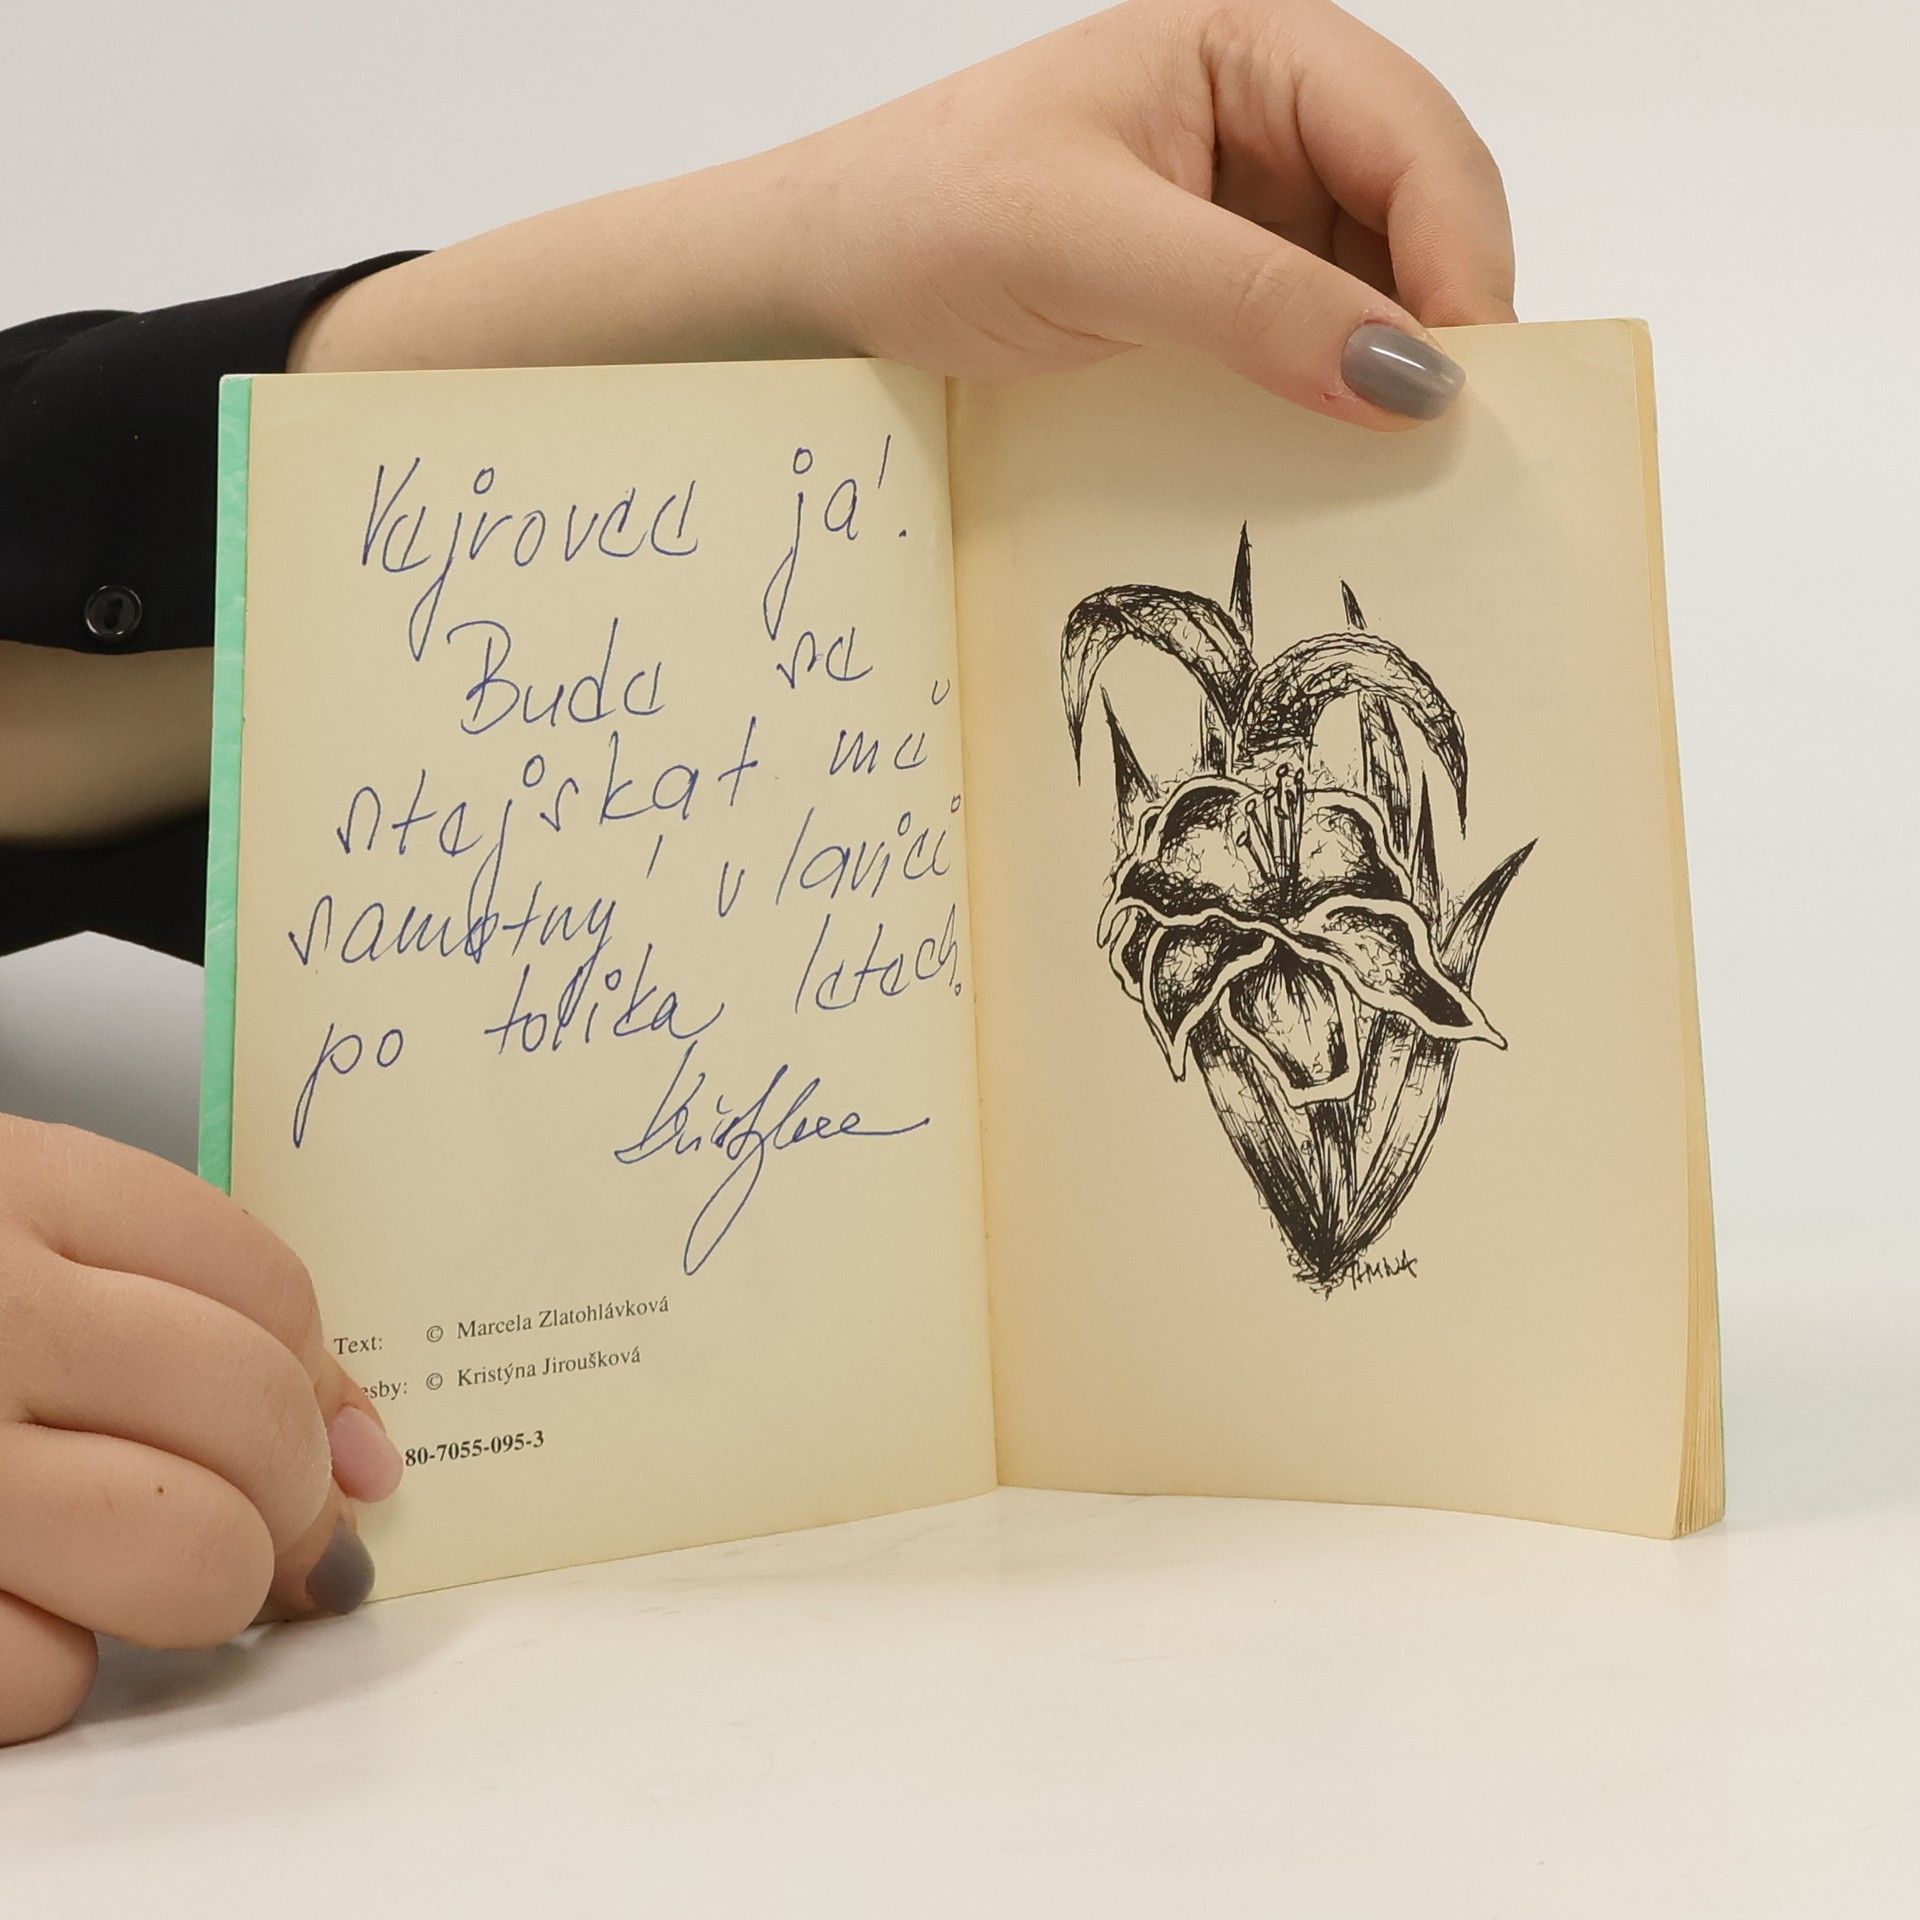 Vejrovče já!
Bude se
stejskat mě
samotný v lavici
po tolika letech.
Text: © Marcela Zlatohlávková
esby: © Kristýna Jiroušková
80-7055-095-3